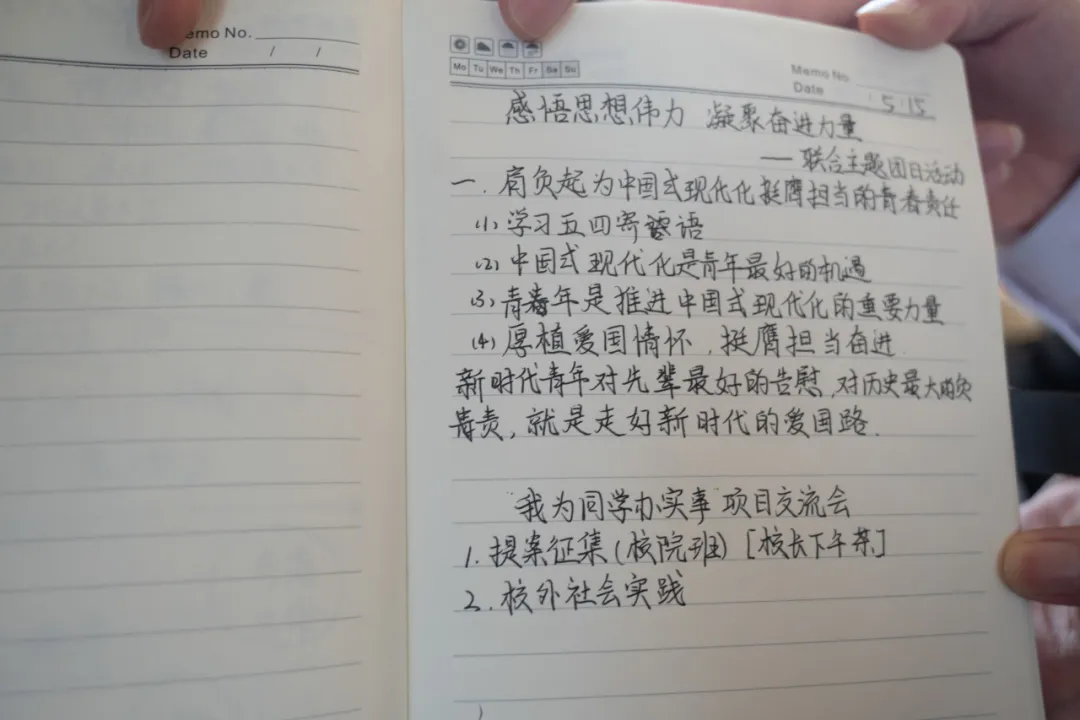 emo No.
Date / /
Mo Tu We Th Fr Sa Su
Memo No.
Date 5 15
感悟思想伟力 凝聚奋进力量
——联合主题团日活动
一. 肩负起为中国式现代化挺膺担当的青春责任
(1) 学习五四寄语
(2) 中国式现代化是青年最好的机遇
(3) 青年是推进中国式现代化的重要力量
(4) 厚植爱国情怀, 挺膺担当奋进.
新时代青年对先辈最好的告慰, 对历史最大的负
责, 就是走好新时代的爱国路.
"我为同学办实事"项目交流会
1. 提案征集(校院班) [校长下午茶]
2. 校外社会实践